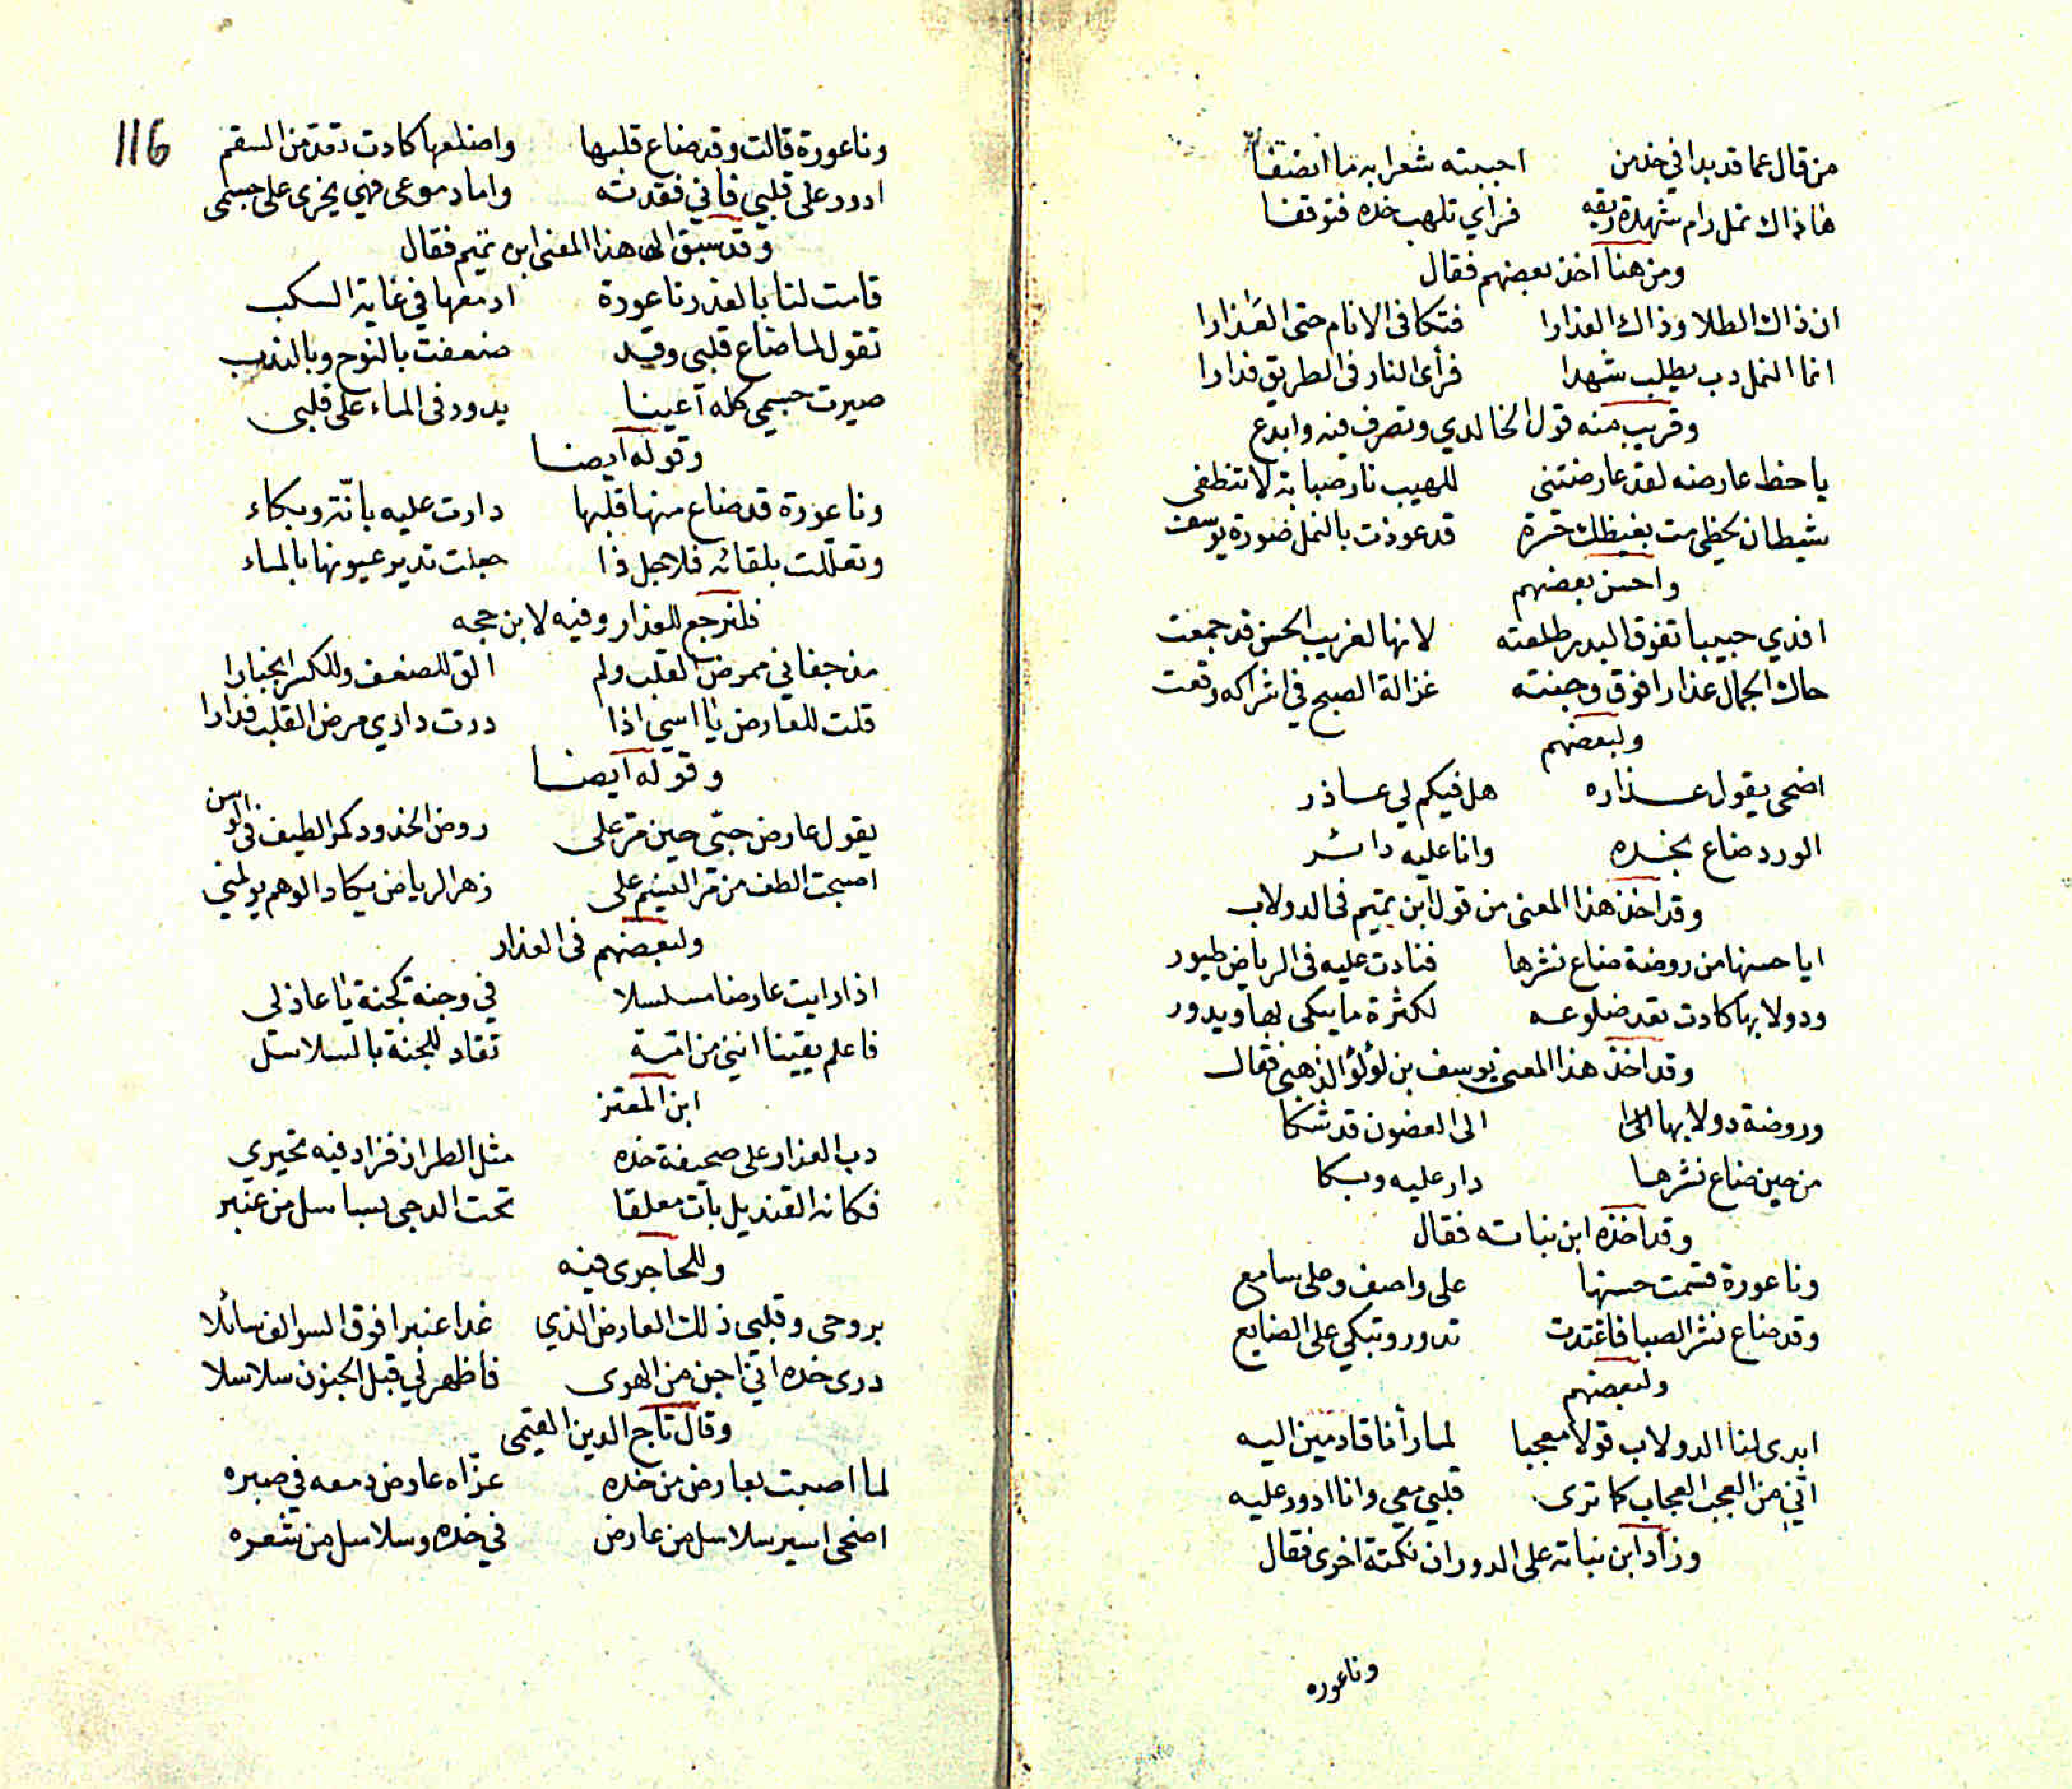 من قال عما قد بدا في خد من احببته شعرا به ما انصفا
هاذاك نمل رام شهدة ريقه فراي تلهب خده فتوقفا
ومن هنا اخذ بعضهم فقال
ان ذاك الطلا وذاك العذارا فتكا فى الانام حتى العذارا
انما النمل دب يطلب شهدا فرأى النار فى الطريق فدارا
وقريب منه قول الخالدي وتصرف فيه وابدع
يا حظ عارضه لقد عارضتنى للهيب نار صبابة لا تنطفى
شيطان لحظى مت بغيظك حسرة قد عوذت بالنمل صورة يوسف
واحسن بعضهم
افدي حبيبا تفوق البدر طلعته لانها لغريب الحسن قد جمعت
حاك الجمال عذارا فوق وجنته غزالة الصبح في اشراكه وقعت
ولبعضهم
اضحى يقول عذاره هل فيكم لي عاذر
الورد ضاع بخده وانا عليه دائر
وقد اخذ هذا المعنى من قول ابن تميم فى الدولاب
ايا حسنها من روضة ضاع نشرها فنادت عليه فى الرياض طيور
ودولابها كادت تعد ضلوعه لكثرة ما يبكى بها ويدور
وقد اخذ هذا المعنى يوسف بن لؤلؤ الذهبى فقال
وروضة دولابها الى الغصون قد شكا
من حين ضاع نشرها دار عليه وبكا
وقد اخذه ابن نباته فقال
وناعورة قسمت حسنها على واصف وعلى سامع
وقد ضاع نشر الصبا فاغتدت تدور وتبكي على الضايع
ولبعضهم
ابدى لنا الدولاب قولا معجبا لما رأنا قادمين اليه
اني من العجب العجاب كما ترى قلبي معي وانا ادور عليه
وزاد ابن نباتة على الدوران نكتة اخرى فقال
وناعوره
116
وناعورة قالت وقد ضاع قلبها واضلعها كادت تقد من السقم
ادور على قلبي فاني فقدته واما دموعى فهي يجرى على جسمى
وقد سبق الى هذا المعنى ابن تميم فقال
قامت لنا بالعذر ناعورة ادمعها في غاية السكب
تقول لما ضاع قلبى وقد ضعفت بالنوح وبالندب
صيرت جسمي كله اعينا يدور فى الماء على قلبى
وقوله ايضا
وناعورة قد ضاع منها قلبها دارت عليه بانة وبكاء
وتعللت بلقائه فلاجل ذا جعلت تدير عيونها بالماء
فلنرجع للعذار وفيه لابن حجه
مذ جفاني ممرض القلب ولم الق للضعف وللكسر انجبارا
قلت للعارض يا اسي اذا درت داري مرض القلب فدارا
وقوله ايضا
يقول عارض حبى حين مر على روض الخدود كمر الطيف فى الوسن
اصبحت الطف من مر النسيم على زهر الرياض يكاد الوهم يولمني
ولبعضهم فى العذار
اذا رايت عارضا مسلسلا في وجنة كجنة يا عاذلي
فاعلم يقينا انني من امة تقاد للجنة بالسلاسل
ابن المعتز
دب العذار على صحيفة خده مثل الطراز فزاد فيه تحيري
فكانه القنديل بات معلقا تحت الدجى بسلاسل من عنبر
وللحاجرى فيه
بروحى وقلبى ذلك العارض الذي غدا عنبرا فوق السوالف سائلا
درى خده اني اجن من الهوى فاظهر لي قبل الجنون سلاسلا
وقال تاج الدين
لما اصبت بعارض من خده عزاه عارض دمعه في صبره
اضحى اسير سلاسل من عارض في خده وسلاسل من شعره